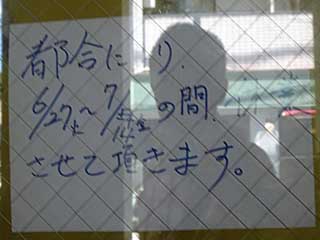 都合に り、
6/27土~7/ 土の間、
させて頂きます。